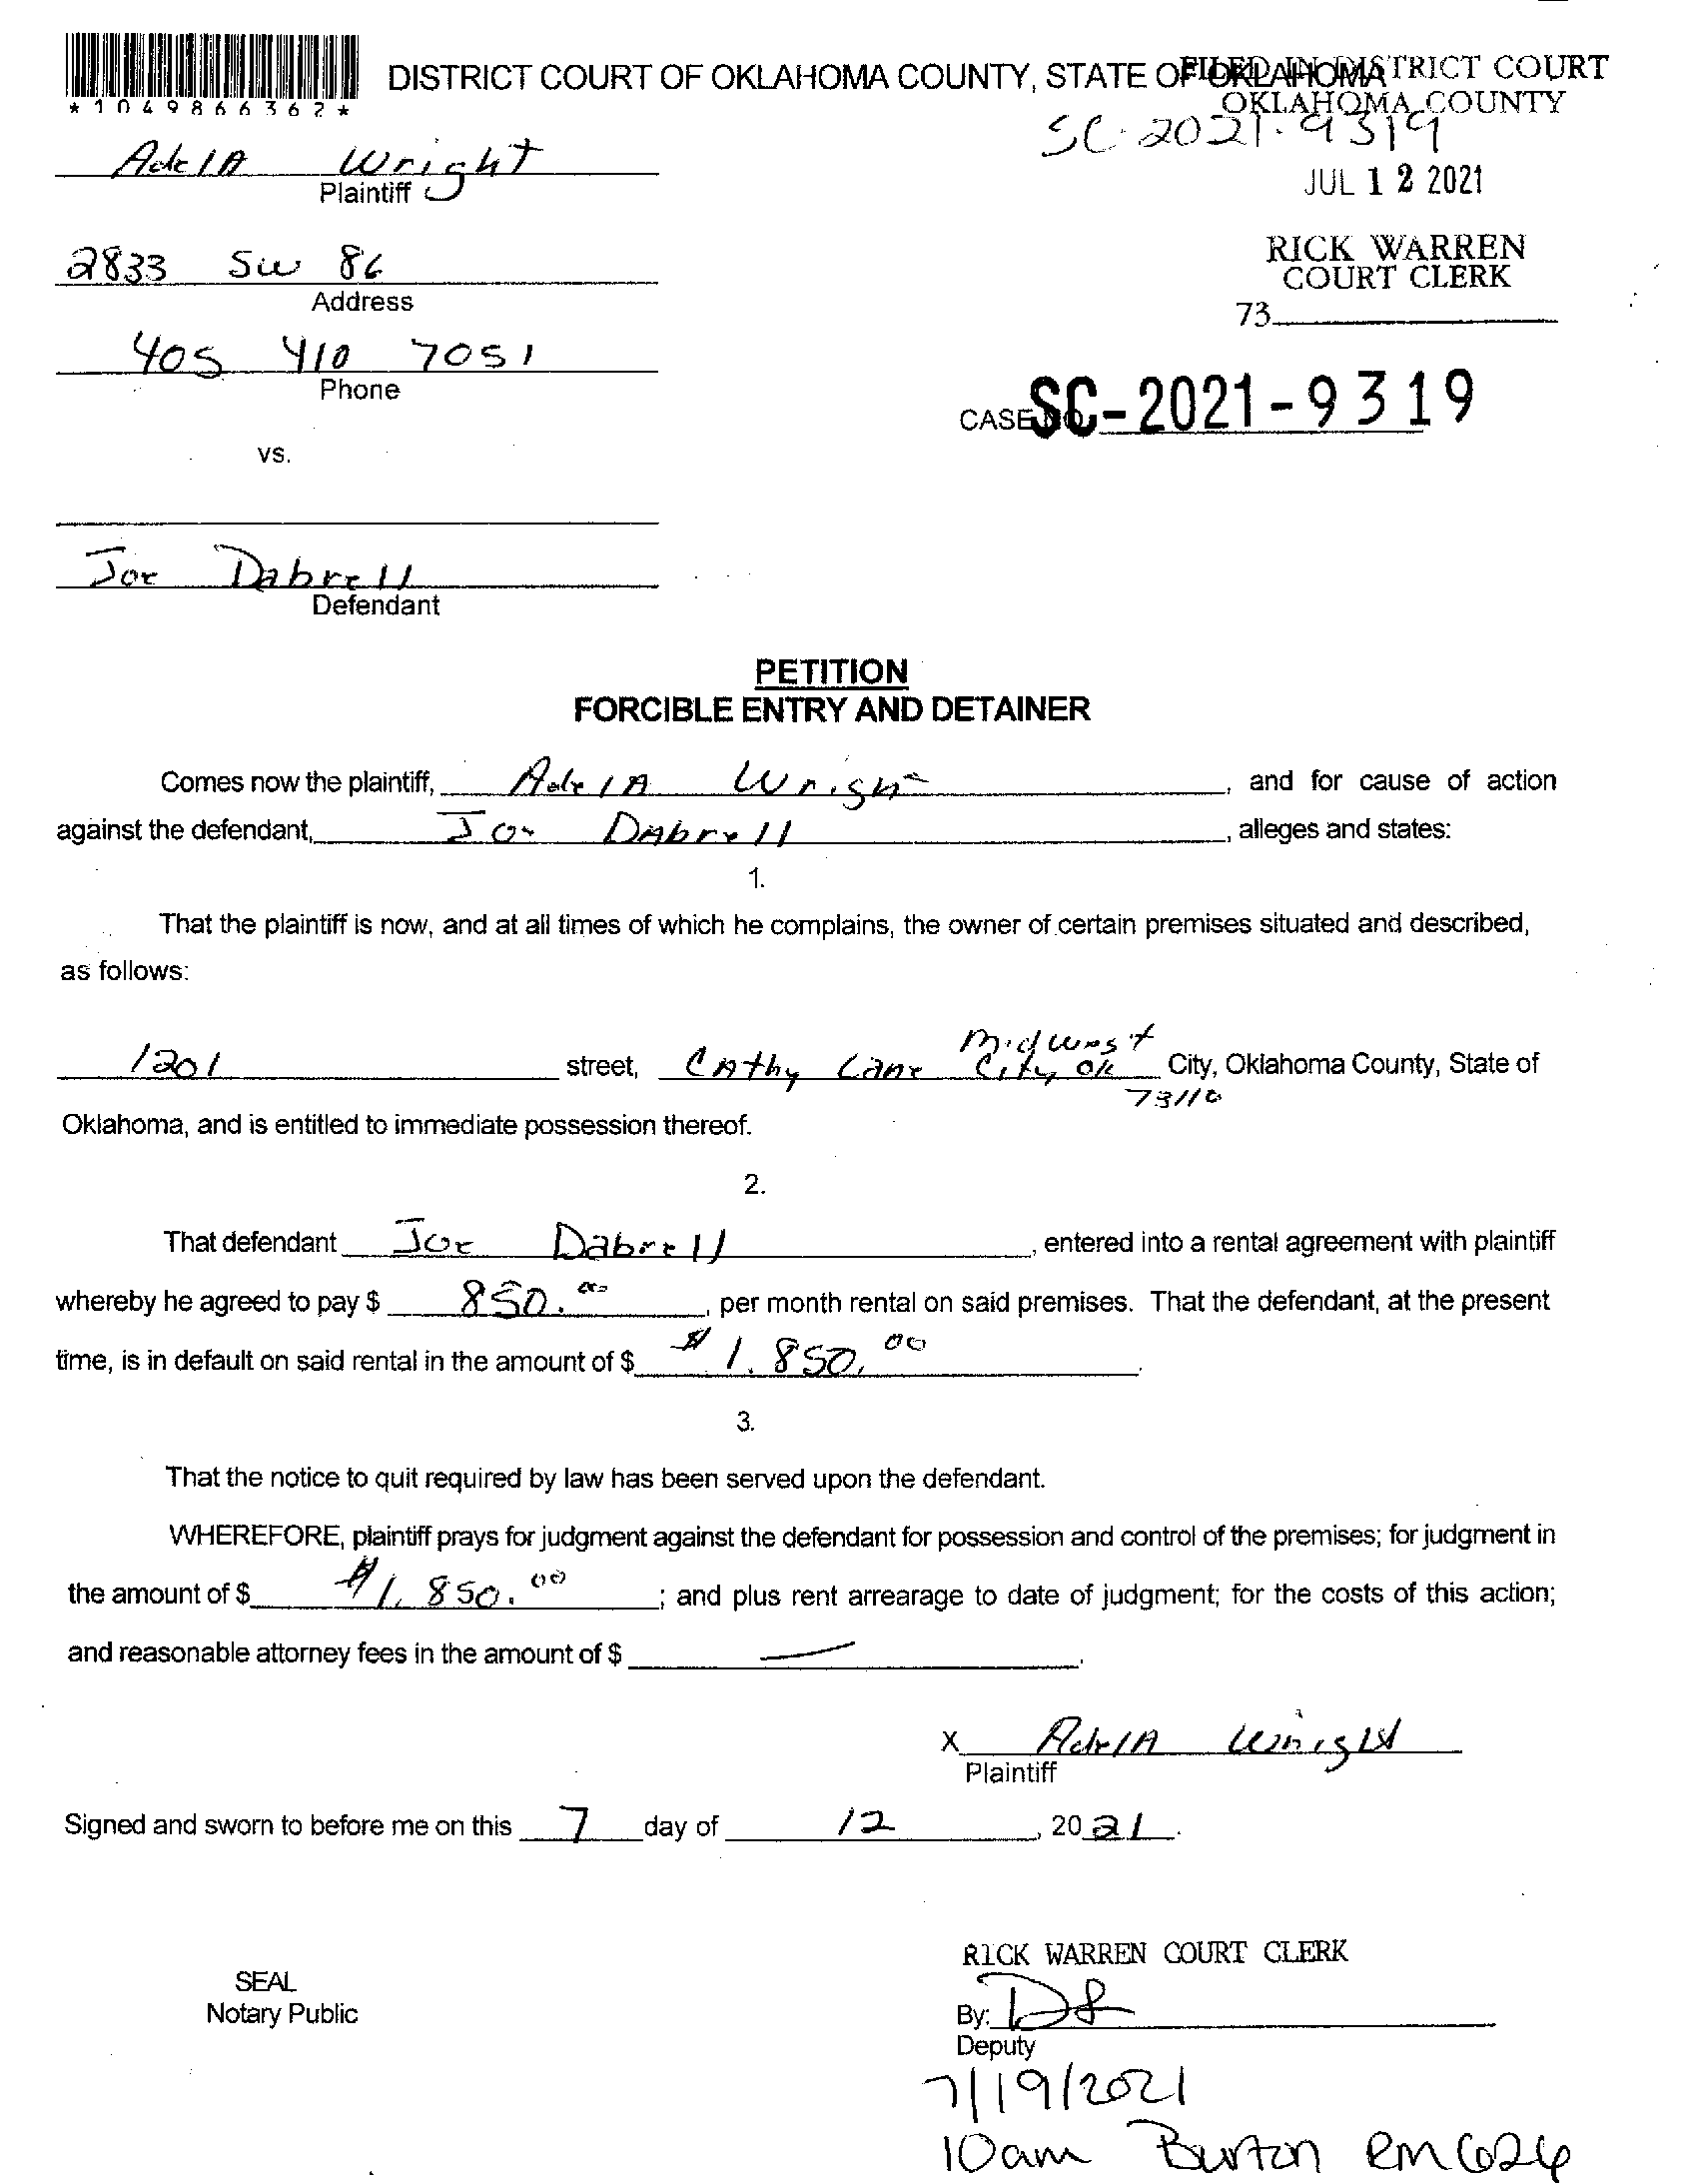 DISTRICT COURT OF OKLAHOMA COUNTY, STATE OF OKLAHOMA
FILED IN DISTRICT COURT
OKLAHOMA COUNTY
*1049866362*
SC-2021-9319
Adela Wright
Plaintiff
JUL 12 2021
2833 SW 86
Address
RICK WARREN
COURT CLERK
73
405 410 7051
Phone
CASE NO. SC-2021-9319
vs.
Joe Dabrell
Defendant
PETITION
FORCIBLE ENTRY AND DETAINER
Comes now the plaintiff, Adela Wright, and for cause of action
against the defendant, Joe Dabrell, alleges and states:
1.
That the plaintiff is now, and at all times of which he complains, the owner of certain premises situated and described,
as follows:
1201 street, Cathy Lane Midwest City OK 73110 City, Oklahoma County, State of
Oklahoma, and is entitled to immediate possession thereof.
2.
That defendant Joe Dabrell, entered into a rental agreement with plaintiff
whereby he agreed to pay $ 850.00, per month rental on said premises. That the defendant, at the present
time, is in default on said rental in the amount of $ $1,850.00.
3.
That the notice to quit required by law has been served upon the defendant.
WHEREFORE, plaintiff prays for judgment against the defendant for possession and control of the premises; for judgment in
the amount of $ $1,850.00; and plus rent arrearage to date of judgment; for the costs of this action;
and reasonable attorney fees in the amount of $ —.
X Adela Wright
Plaintiff
Signed and sworn to before me on this 7 day of 12, 2021.
RICK WARREN COURT CLERK
SEAL
Notary Public
By:
Deputy
7/19/2021
10am Burton RM 626